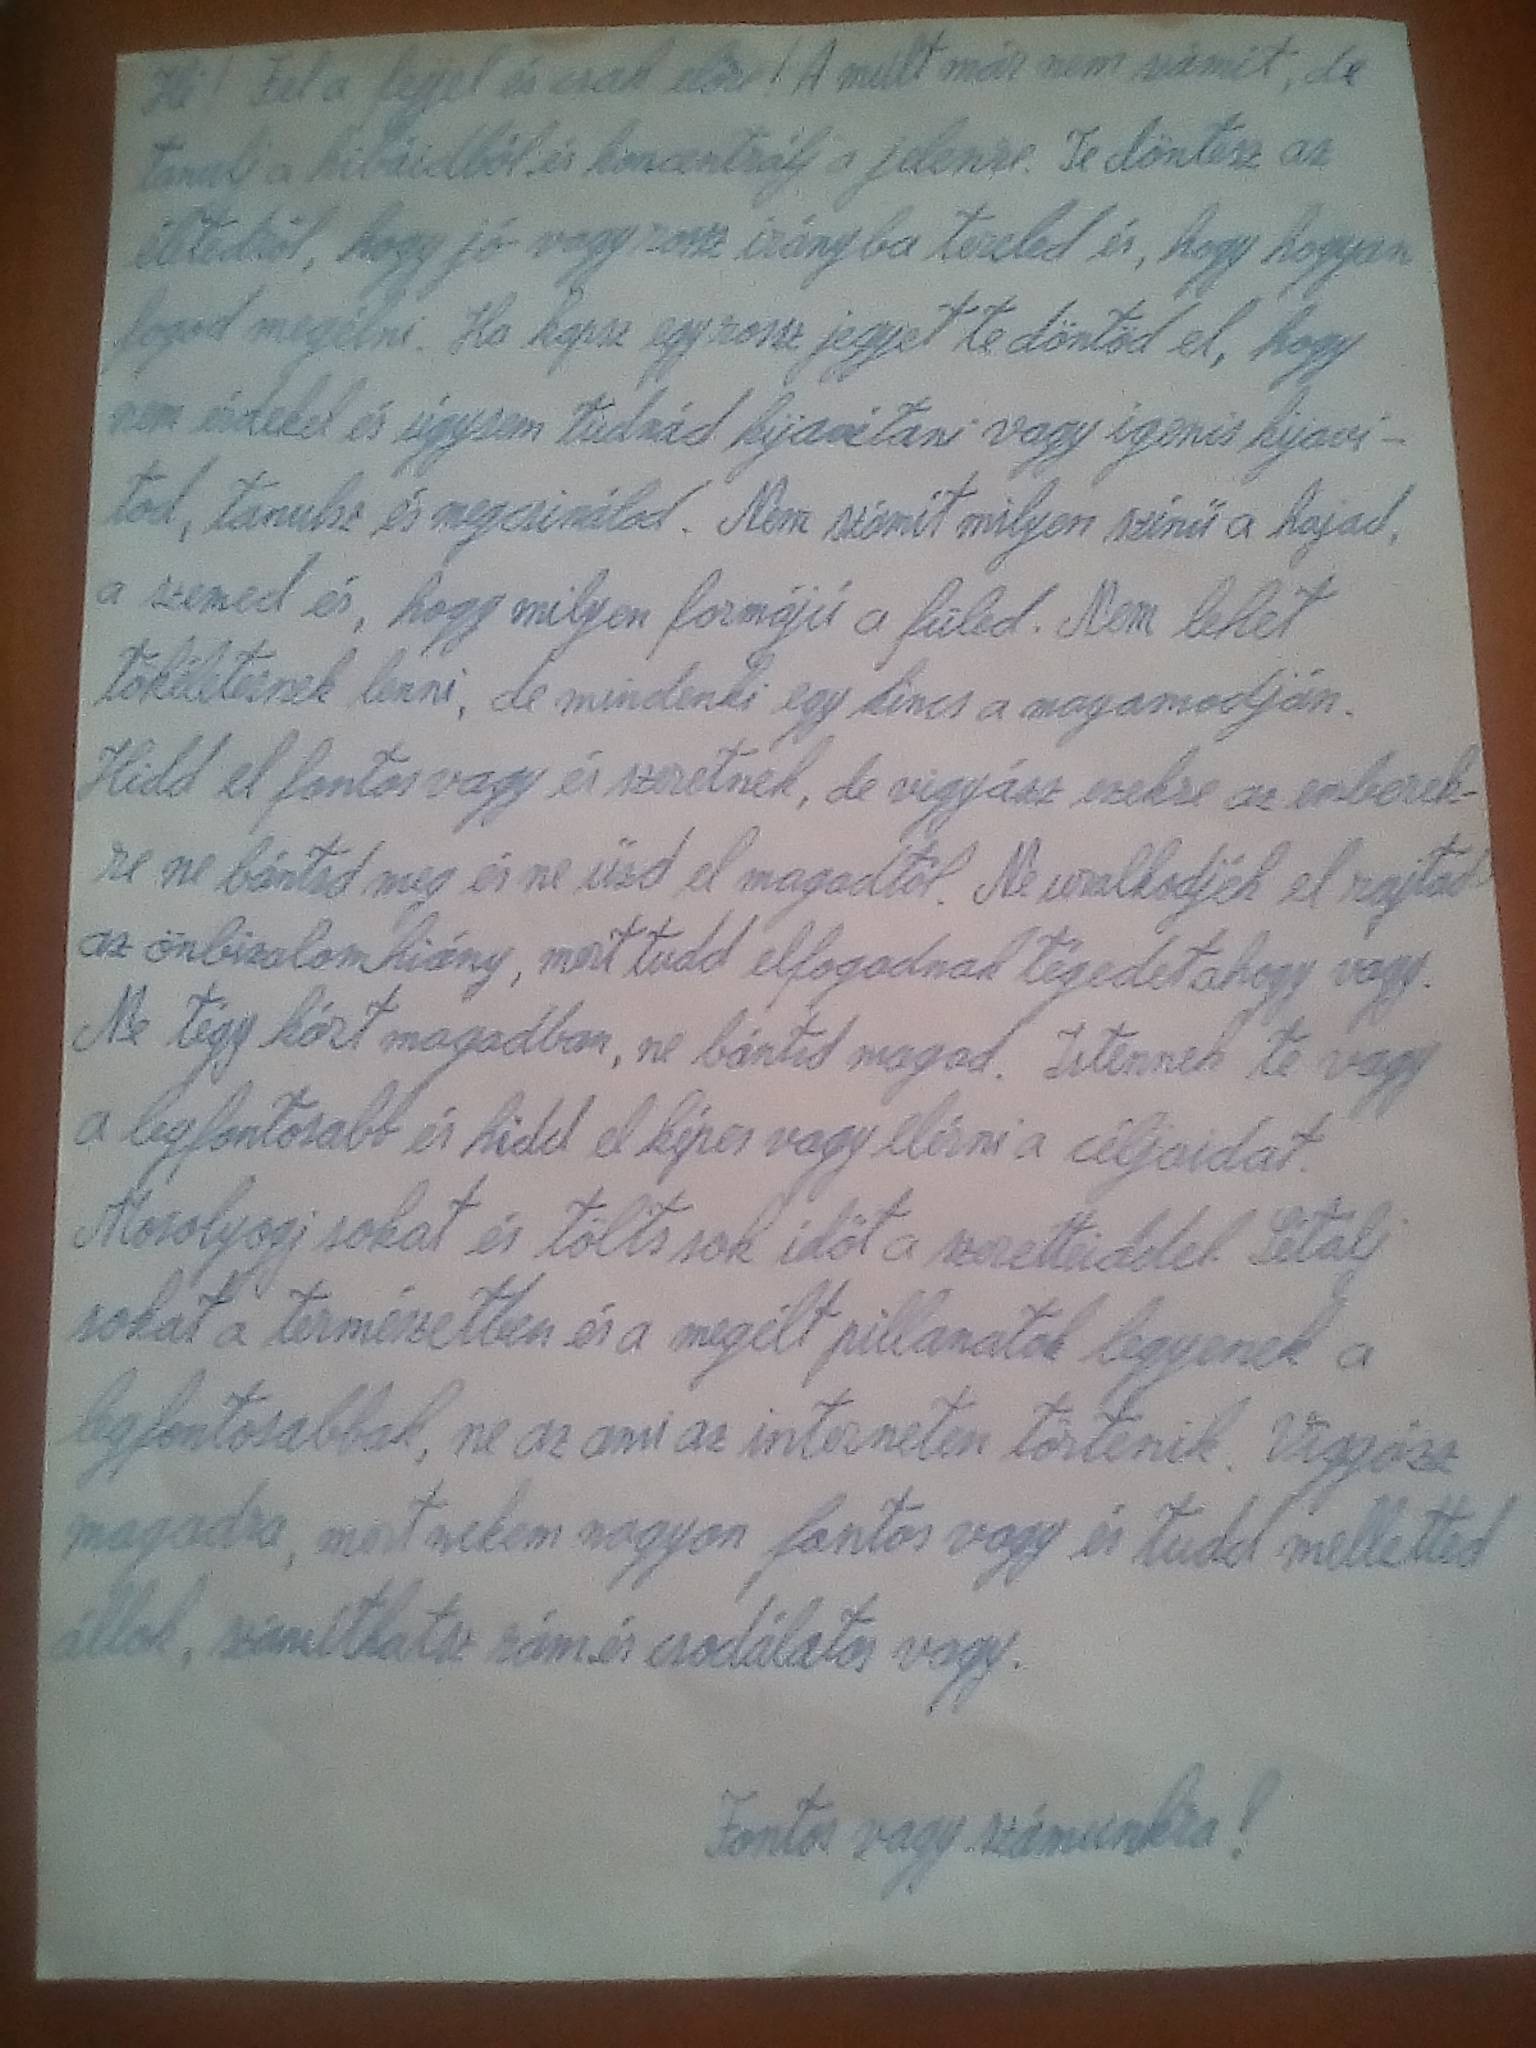 Hi! Fel a fejjel és csak előre! A múlt már nem számít, de
tanulj a hibáidból és koncentrálj a jelenre. Te döntesz az
életedről, hogy jó vagy rossz irányba tereled és, hogy hogyan
fogod megélni. Ha kapsz egy rossz jegyet te döntöd el, hogy
nem érdekel és úgysem tudnád kijavítani vagy igenis kijaví-
tod, tanulsz és megcsinálod. Nem számít milyen színű a hajad,
a szemed és, hogy milyen formájú a füled. Nem lehet
tökéletesnek lenni, de mindenki egy kincs a magamodján.
Hidd el fontos vagy és szeretnek, de vigyázz ezekre az emberek-
re ne bántsd meg és ne űzd el magadtól. Ne uralkodjék el rajtad
az önbizalomhiány, mert tudd elfogadnak tégedet ahogy vagy.
Ne tégy kárt magadban, ne bántsd magad. Istennek te vagy
a legfontosabb és hidd el képes vagy elérni a céljaidat.
Mosolyogj sokat és tölts sok időt a szeretteiddel. Sétálj
sokat a természetben és a megélt pillanatok legyenek a
legfontosabbak, ne az ami az interneten történik. Vigyázz
magadra, mert nekem nagyon fontos vagy és tudd melletted
állok, számíthatsz rám és csodálatos vagy.
Fontos vagy számunkra!